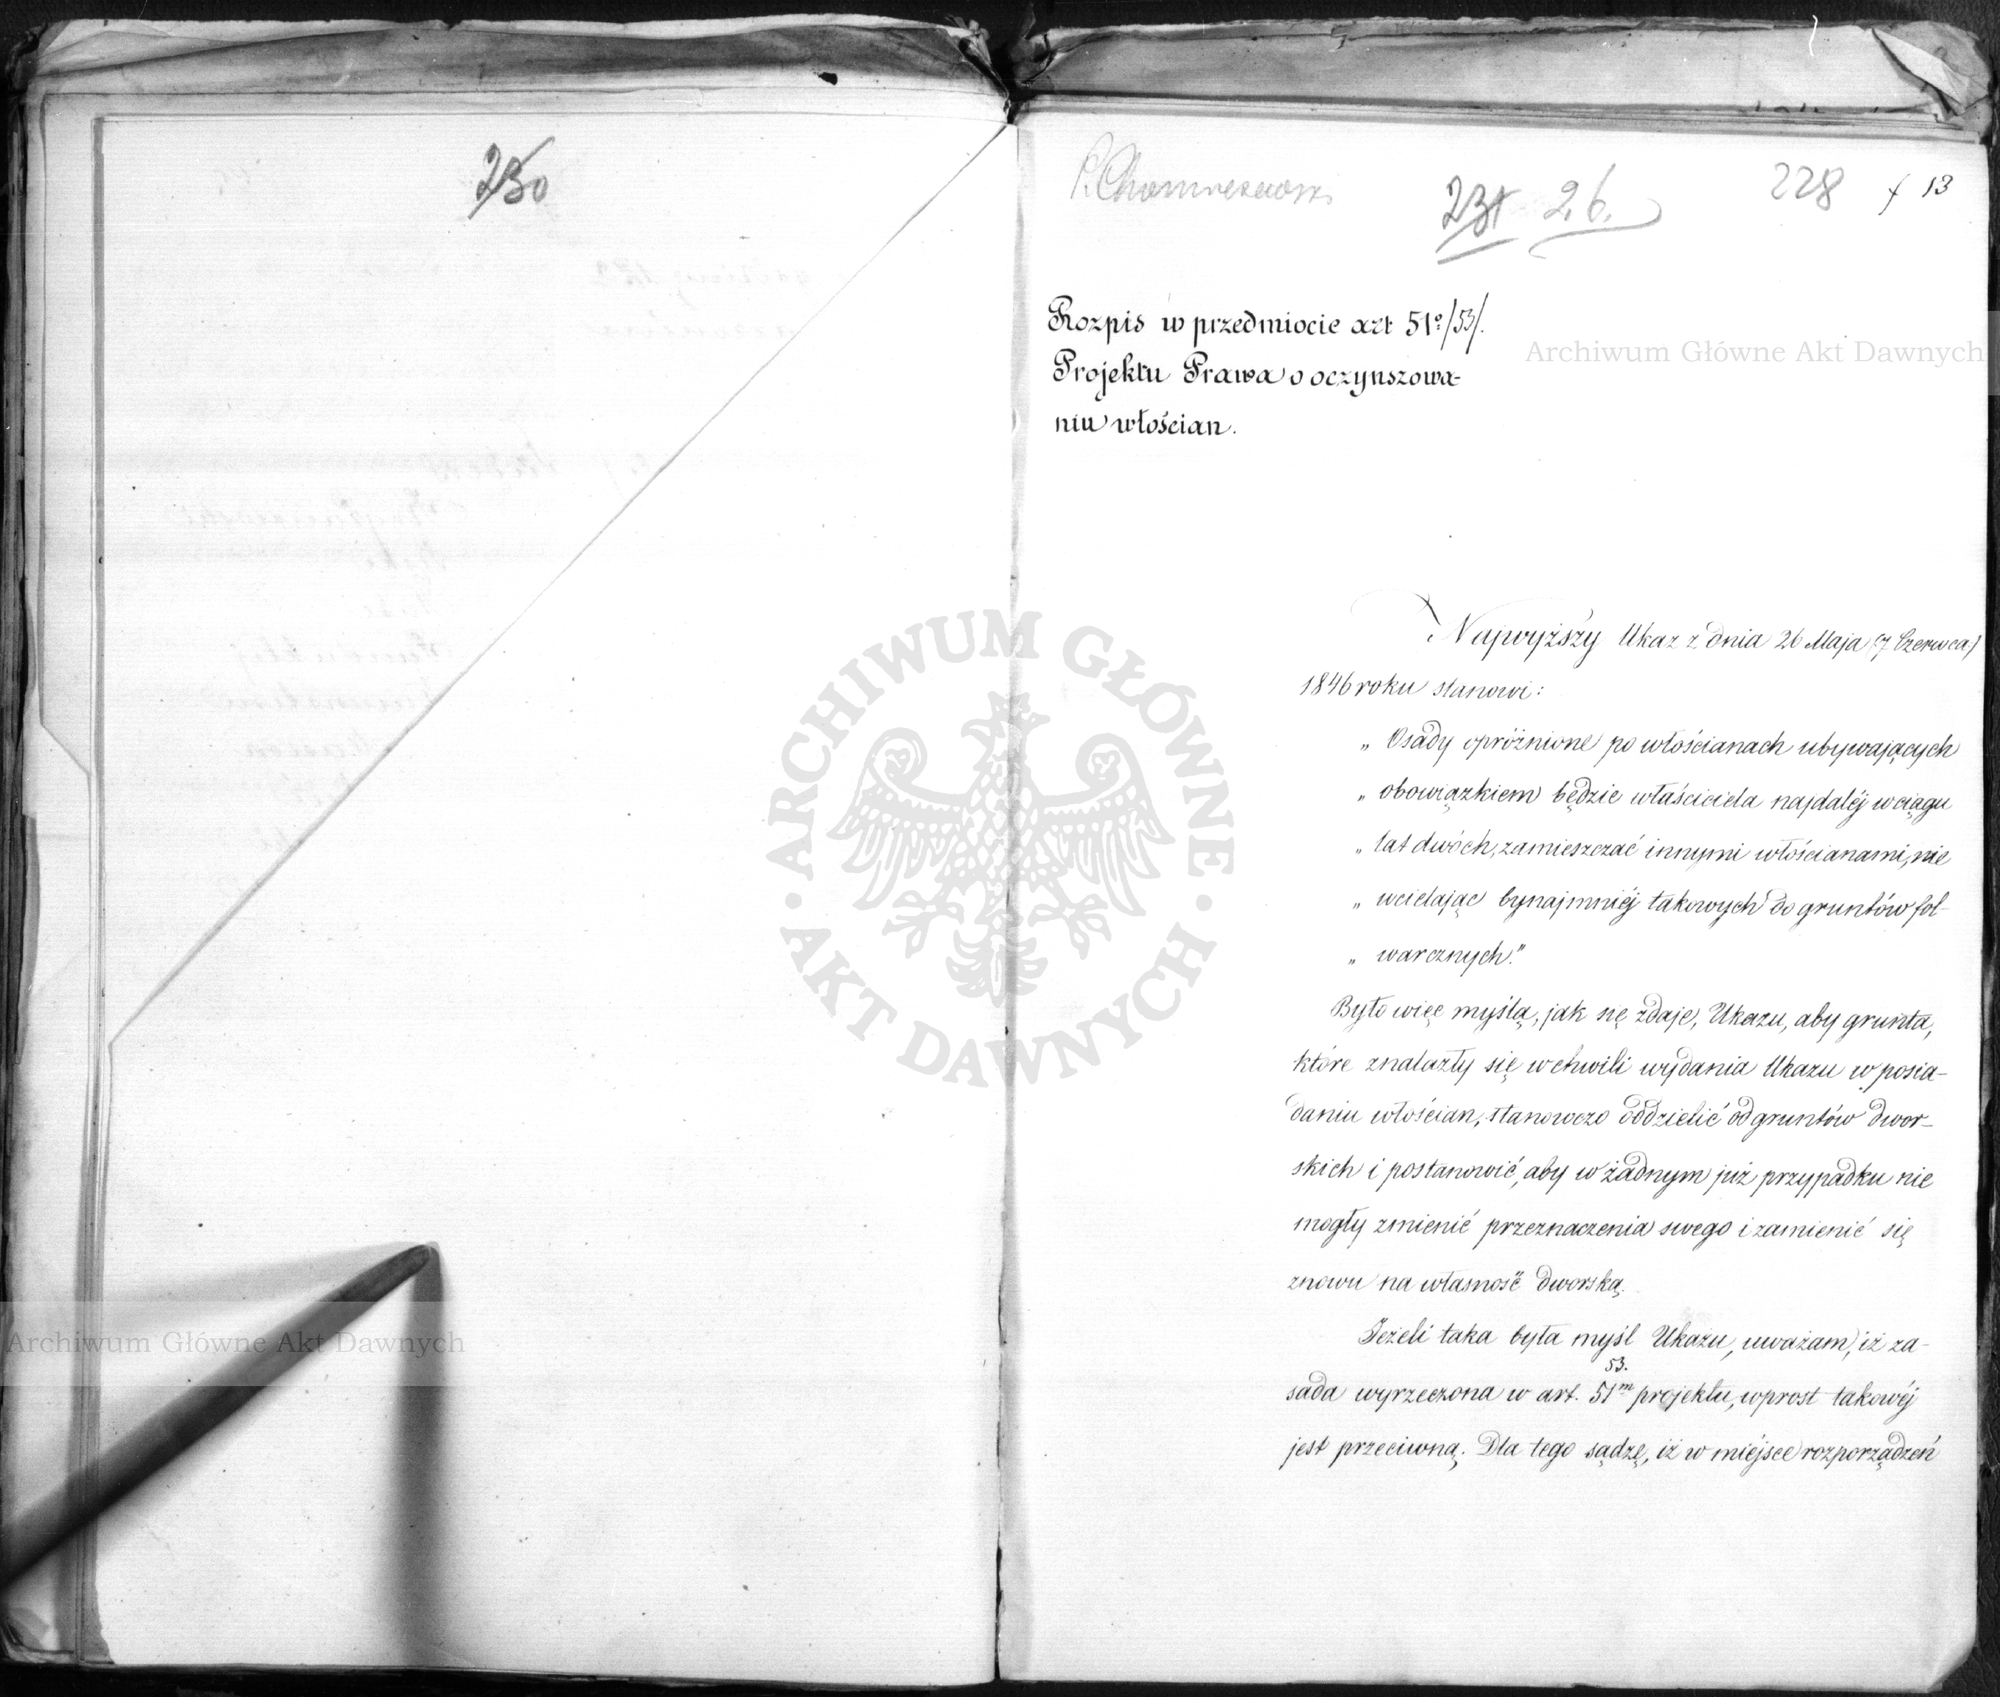 230
231 26.
228
13
Rozpis w przedmiocie art 51º /53/.
Projektu Prawa o oczynszowa-
niu włościan.
Najwyższy Ukaz z dnia 26 Maja (7 Czerwca)
1846 roku stanowi:
„ Osady opróżnione po włościanach ubywających
„ obowiązkiem będzie właściciela najdaléj w ciągu
„ lat dwóch, zamieszczać innymi włościanami, nie
„ wcielając bynajmniéj takowych do gruntów fol-
„ warcznych."
Było więc myślą, jak się zdaje, Ukazu, aby grunta,
które znalazły się w chwili wydania Ukazu w posia-
daniu włościan, stanowczo oddzielić od gruntów dwor-
skich i postanowić, aby w żadnym już przypadku nie
mogły zmienić przeznaczenia swego i zamienić się
znowu na własność dworską.
Jeżeli taka była myśl Ukazu, uważam, iż za-
53.
sada wyrzeczona w art. 51m projektu, wprost takowéj
jest przeciwną. Dla tego sądzę, iż w miéjsce rozporządzeń
Archiwum Główne Akt Dawnych
Archiwum Główne Akt Dawnych
ARCHIWUM GŁÓWNE · AKT DAWNYCH ·